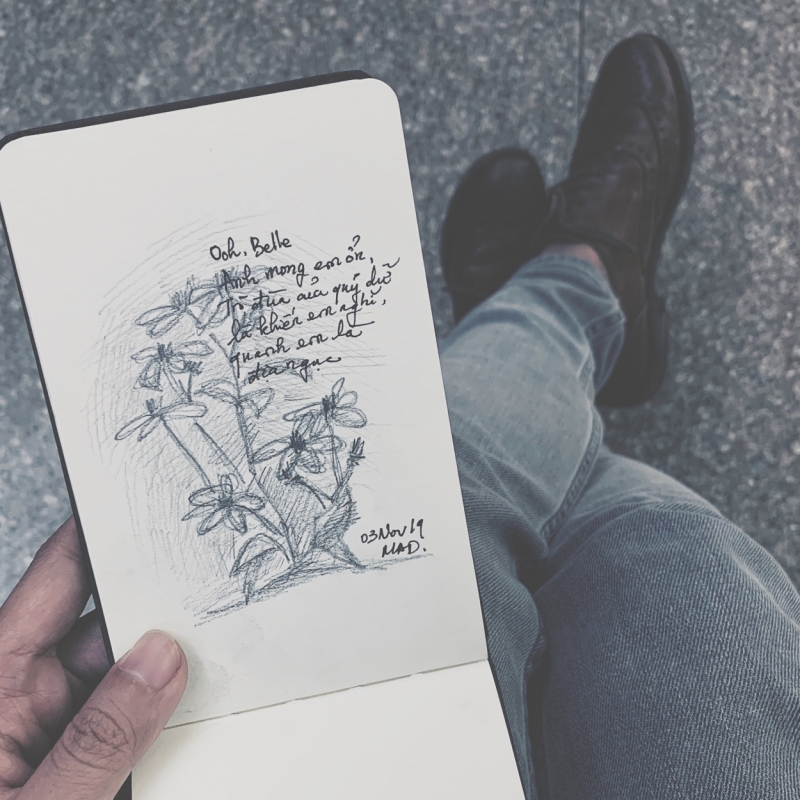 Ooh, Belle
Anh mong em ổn,
Trò đùa của quỷ dữ
là khiến em nghĩ,
quanh em là
địa ngục
03 Nov 19
MAD.